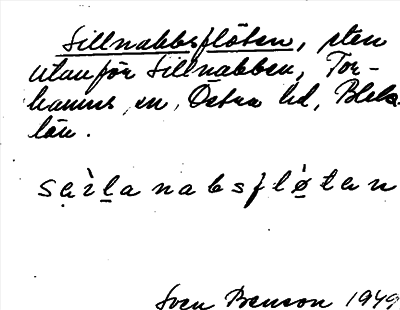 Sillnabbsflöten, sten
utanför Sillnabben, Tor-
hamns sn, Östra hd, Blek.
län.
sạ̈ìl̠a nabsflø̠̀tan
Sven Benson 1949